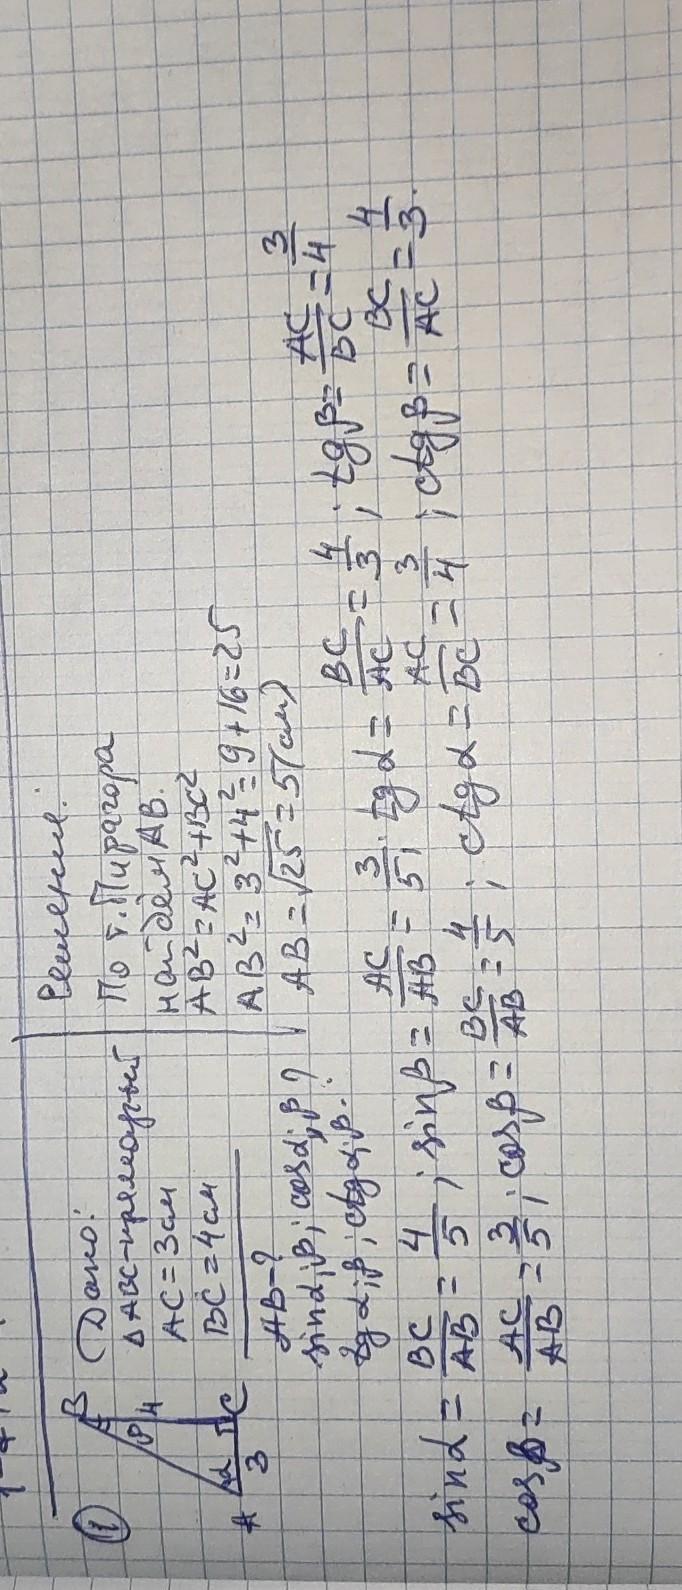 ① B
β 4
α
A 3 C
Дано:
ΔABC-прямоуг
AC=3см
BC=4см
AB-?
sinα,β; cosα,β?
tgα,β; ctgα,β-?
Решение:
По т.Пифагора
найдём AB.
AB²=AC²+BC²
AB²=3²+4²=9+16=25
AB=√25=5(см)
sinα=BC/AB=4/5; sinβ=AC/AB=3/5; tgα=BC/AC=4/3; tgβ=AC/BC=3/4
cosβ=AC/AB=3/5; cosβ=BC/AB=4/5; ctgα=AC/BC=3/4; ctgβ=BC/AC=4/3.